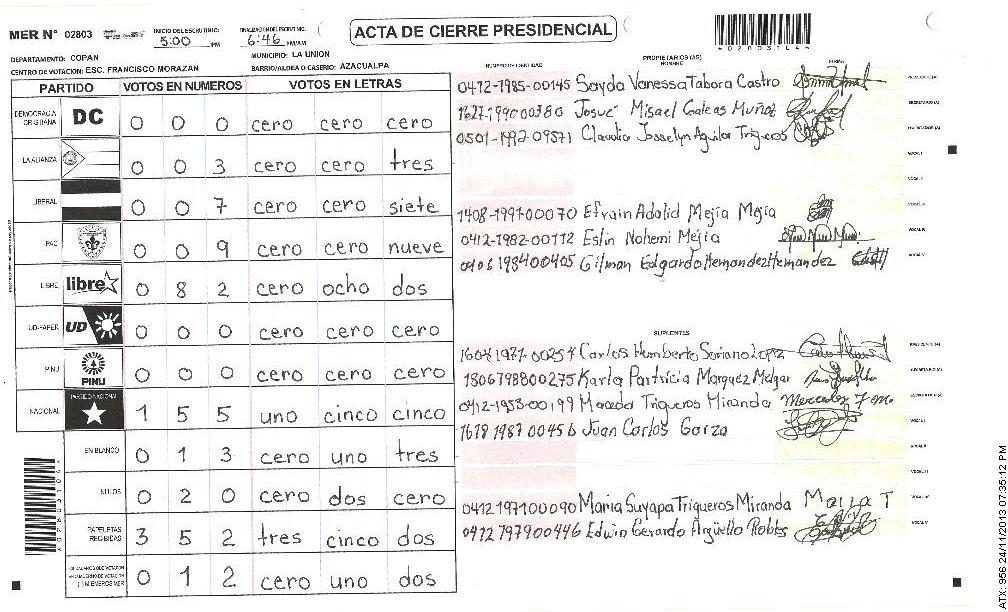 MER N° 02803
INICIO DEL ESCRUTINIO: 5:00 PM
FINALIZACION ESCRUTINIO: 6:46 PM/AM
ACTA DE CIERRE PRESIDENCIAL
DEPARTAMENTO: COPAN
MUNICIPIO: LA UNION
CENTRO DE VOTACION: ESC. FRANCISCO MORAZAN
BARRIO/ALDEA O CASERIO: AZACUALPA
PARTIDO VOTOS EN NUMEROS VOTOS EN LETRAS
DEMOCRACIA CRISTIANA DC 0 0 0 cero cero cero
LA ALIANZA 0 0 3 cero cero tres
LIBERAL 0 0 7 cero cero siete
PAC 0 0 9 cero cero nueve
LIBRE libre 0 8 2 cero ocho dos
UD-FAPER UD 0 0 0 cero cero cero
PINU PINU 0 0 0 cero cero cero
NACIONAL PARTIDO NACIONAL 1 5 5 uno cinco cinco
EN BLANCO 0 1 3 cero uno tres
NULOS 0 2 0 cero dos cero
PAPELETAS RECIBIDAS 3 5 2 tres cinco dos
MIEMBROS MER 0 1 2 cero uno dos
PROPIETARIOS (AS)
NUMERO DE IDENTIDAD NOMBRE FIRMA
0472-1985-00145 Sayda Vanessa Tabora Castro
1627-199000380 Josué Misael Galeas Muñoz
0501-1992-09571 Claudia Josselyn Aguilar Trigueros
1408-1991-00070 Efrain Adalid Mejía Mejía
0412-1982-00112 Eslin Nohemi Mejia
Gilman Edgardo Hernandez Hernandez
SUPLENTES
Carlos Humberto Soriano Lopez
1806798800275 Karla Patricia Marquez Melgar
0412-1953-00199 Maceda Trigueros Miranda Mercedes T M.
1678 1987 00456 Juan Carlos Garza
0412197100090 Maria Suyapa Trigueros Miranda Maria T
0412797900446 Edwin Gerardo Argüello Robles
ATX: 956 24/11/2013 07:35:12 PM